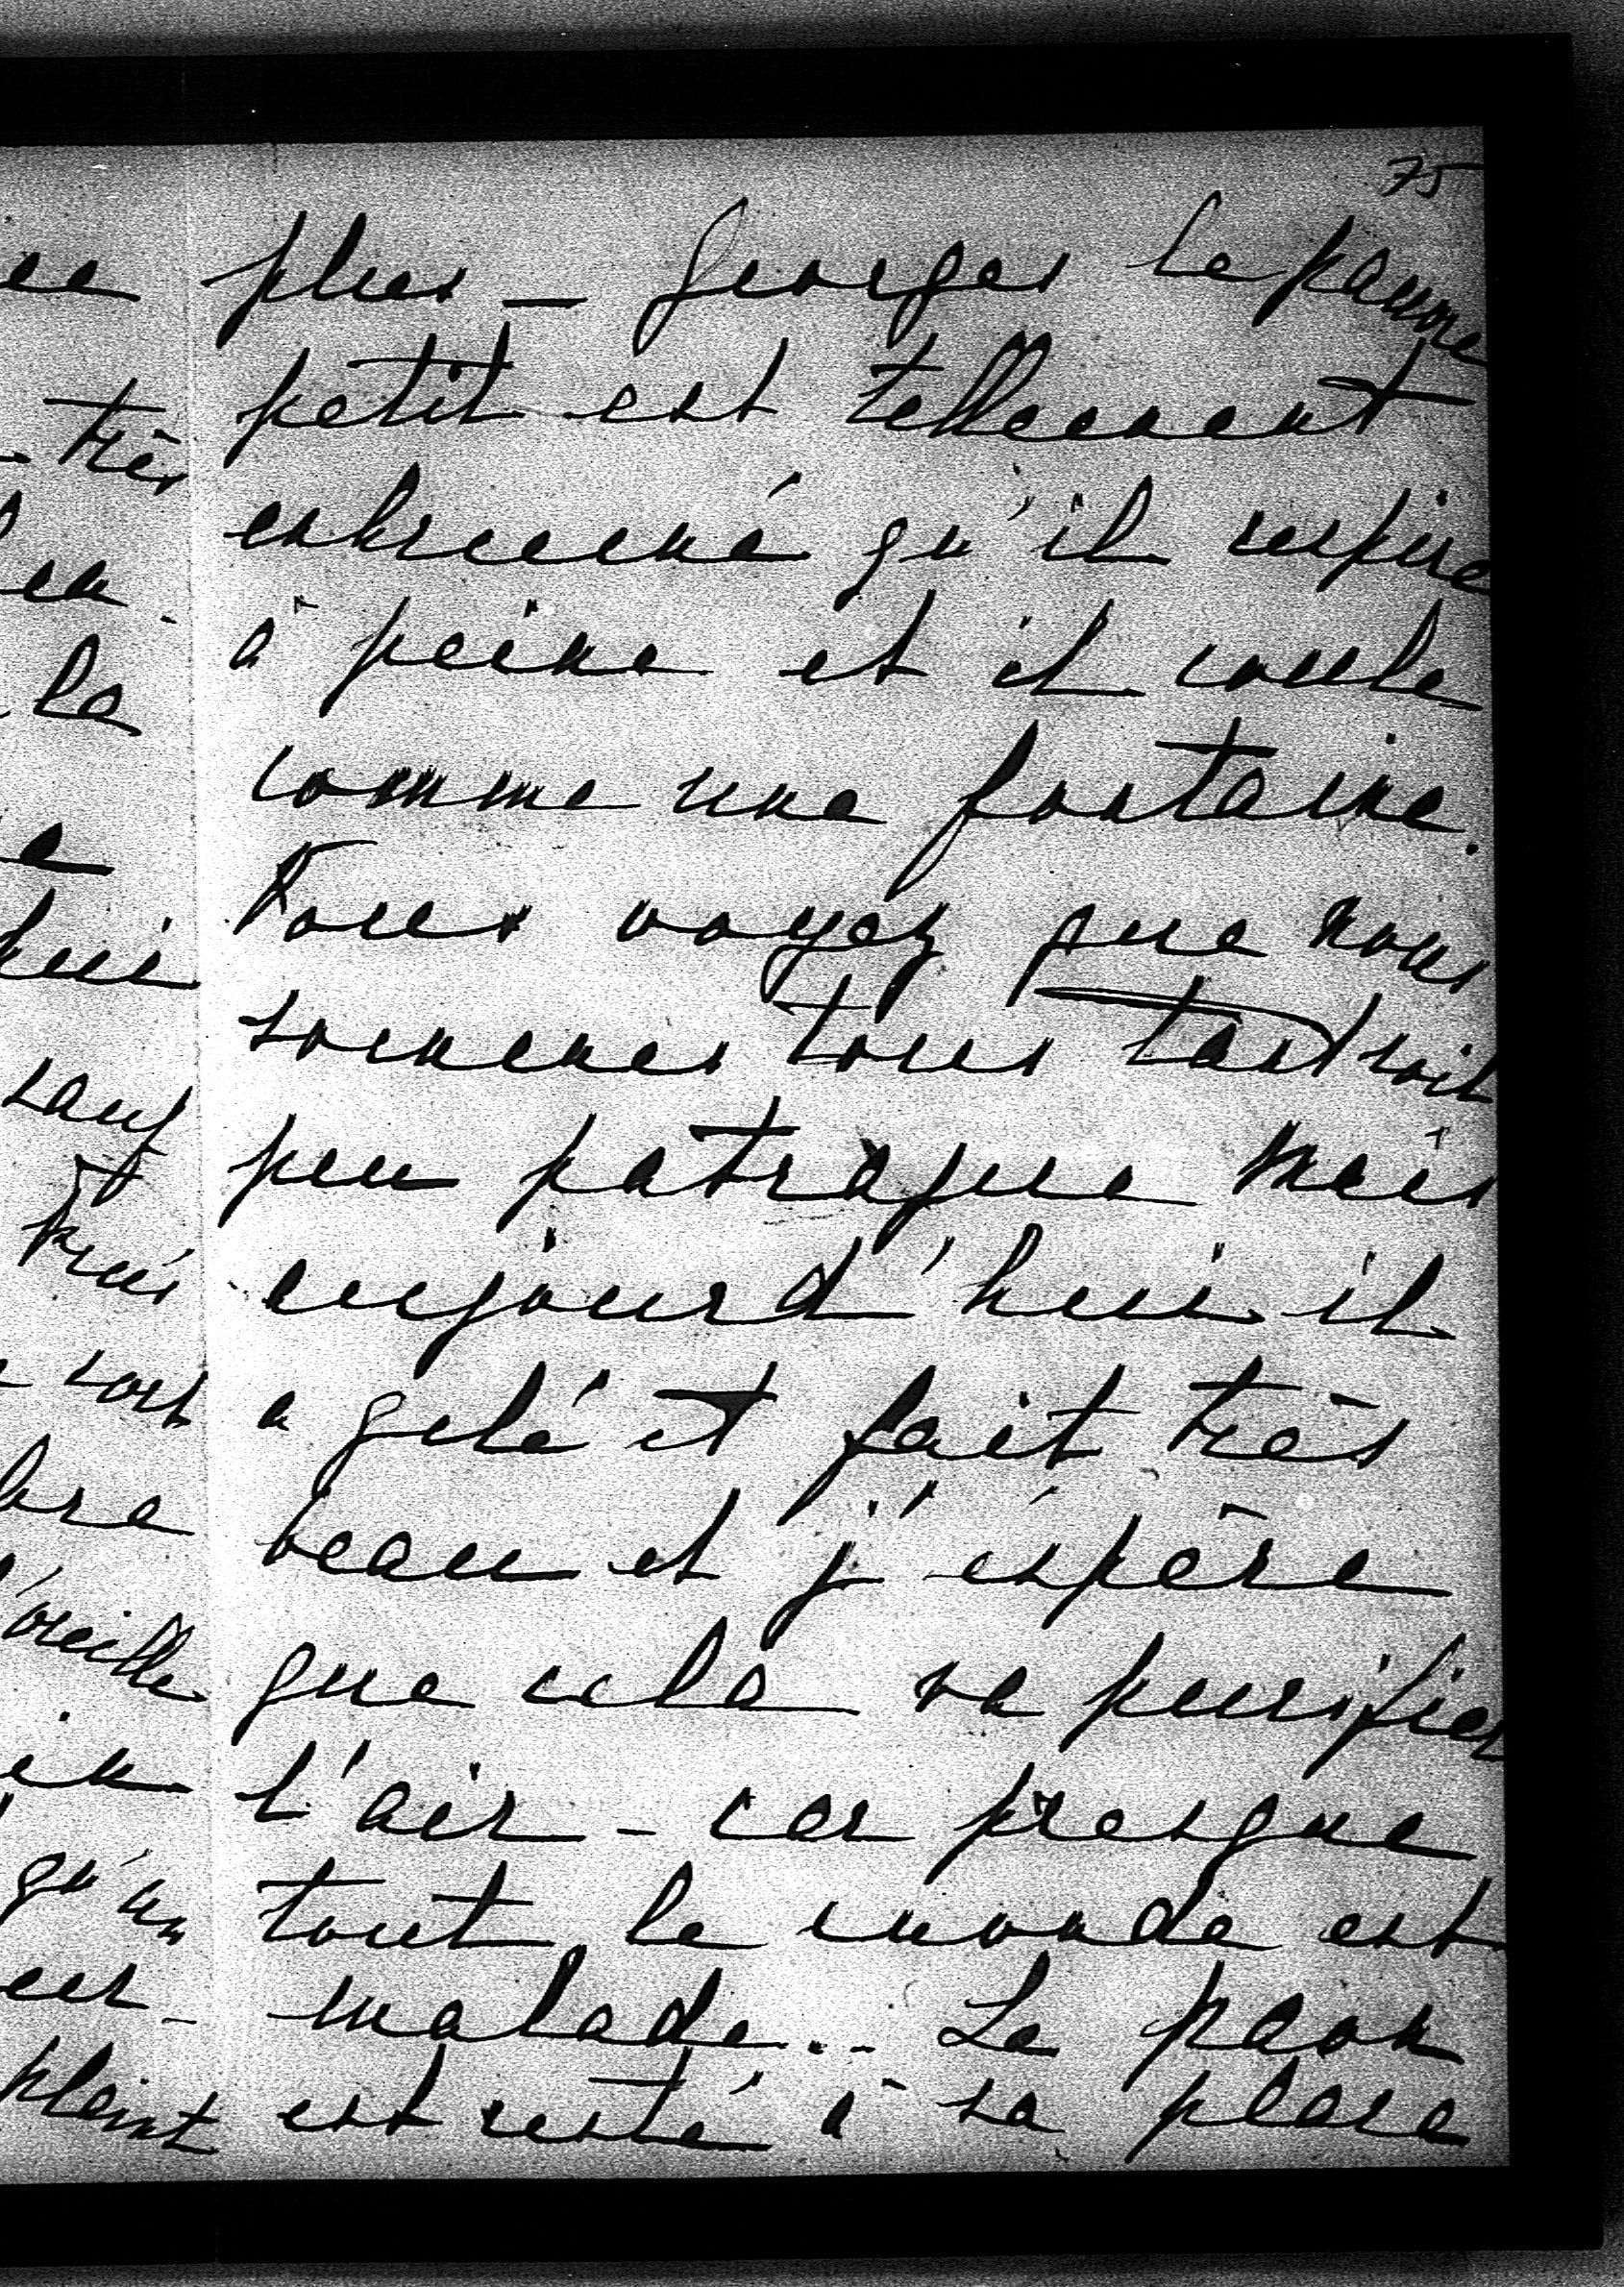 75
plus _ Georges le pauvre
petit est tellement
enhrumé qu'il respire
à peine et il coule
comme une fontaine.
Vous voyez que nous
sommes tous tant soit
peu patraque mais
aujourd'hui il
a gelé et fait très
beau et j'éspère
que cela va purifier
l'air - car presque
tout le monde est
malade.. - Le paon
est resté à sa place
très
la
sauf
sort
l'oreille
qu'un
plaint